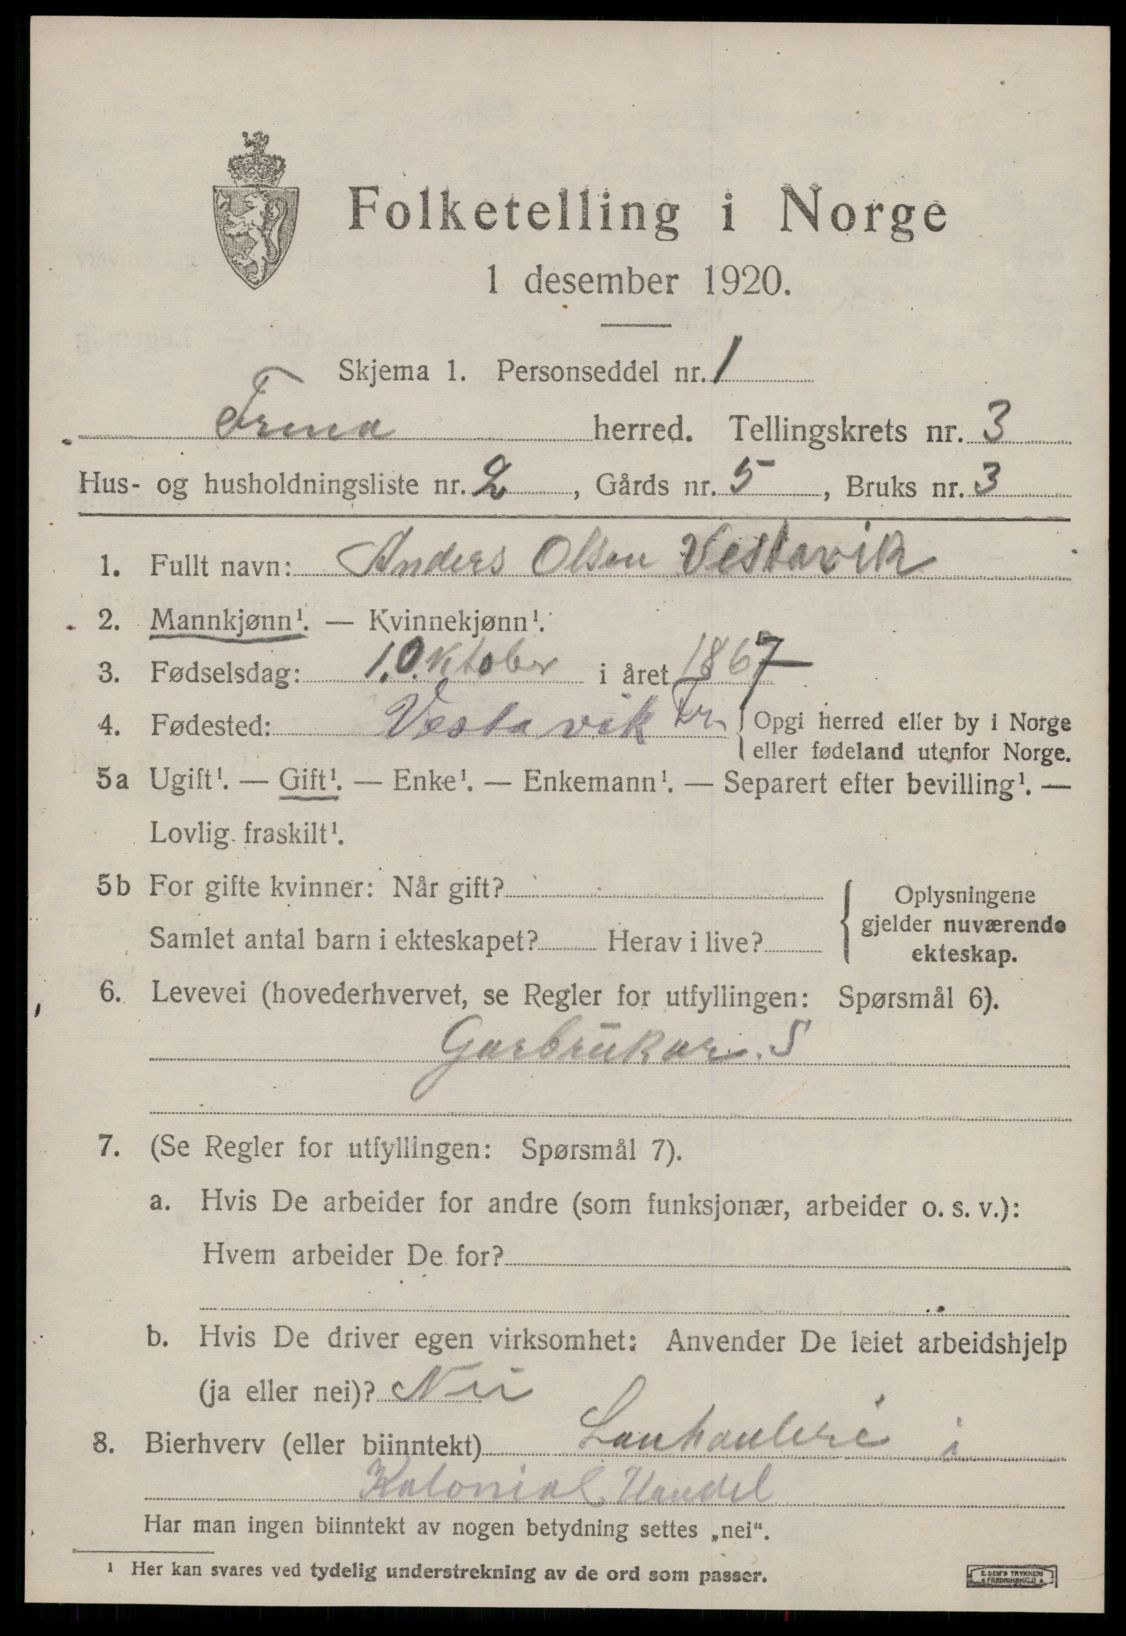 Folketelling i Norge
1 desember 1920.
Skjema 1. Personseddel nr. 1
herred. Tellingskrets nr. 3
Hus- og husholdningsliste nr. 2, Gårds nr. 5, Bruks nr. 3
1. Fullt navn: Anders Olsen Vestavik
2. Mannkjønn¹. — Kvinnekjønn¹.
3. Fødselsdag: 1. Oktober i året 1867
4. Fødested: Vestavik Fr. Opgi herred eller by i Norge
eller fødeland utenfor Norge.
5a Ugift¹. — Gift¹. — Enke¹. — Enkemann¹. — Separert efter bevilling¹. —
Lovlig fraskilt¹.
5b For gifte kvinner: Når gift?
Samlet antal barn i ekteskapet? Herav i live?
Oplysningene
gjelder nuværende
ekteskap.
6. Levevei (hovederhvervet, se Regler for utfyllingen: Spørsmål 6).
Garbrukar. S
7. (Se Regler for utfyllingen: Spørsmål 7).
a. Hvis De arbeider for andre (som funksjonær, arbeider o. s. v.):
Hvem arbeider De for?
b. Hvis De driver egen virksomhet: Anvender De leiet arbeidshjelp
(ja eller nei)? Nei
8. Bierhverv (eller biinntekt) i
Kolonial Handel
Har man ingen biinntekt av nogen betydning settes „nei“.
¹ Her kan svares ved tydelig understrekning av de ord som passer.